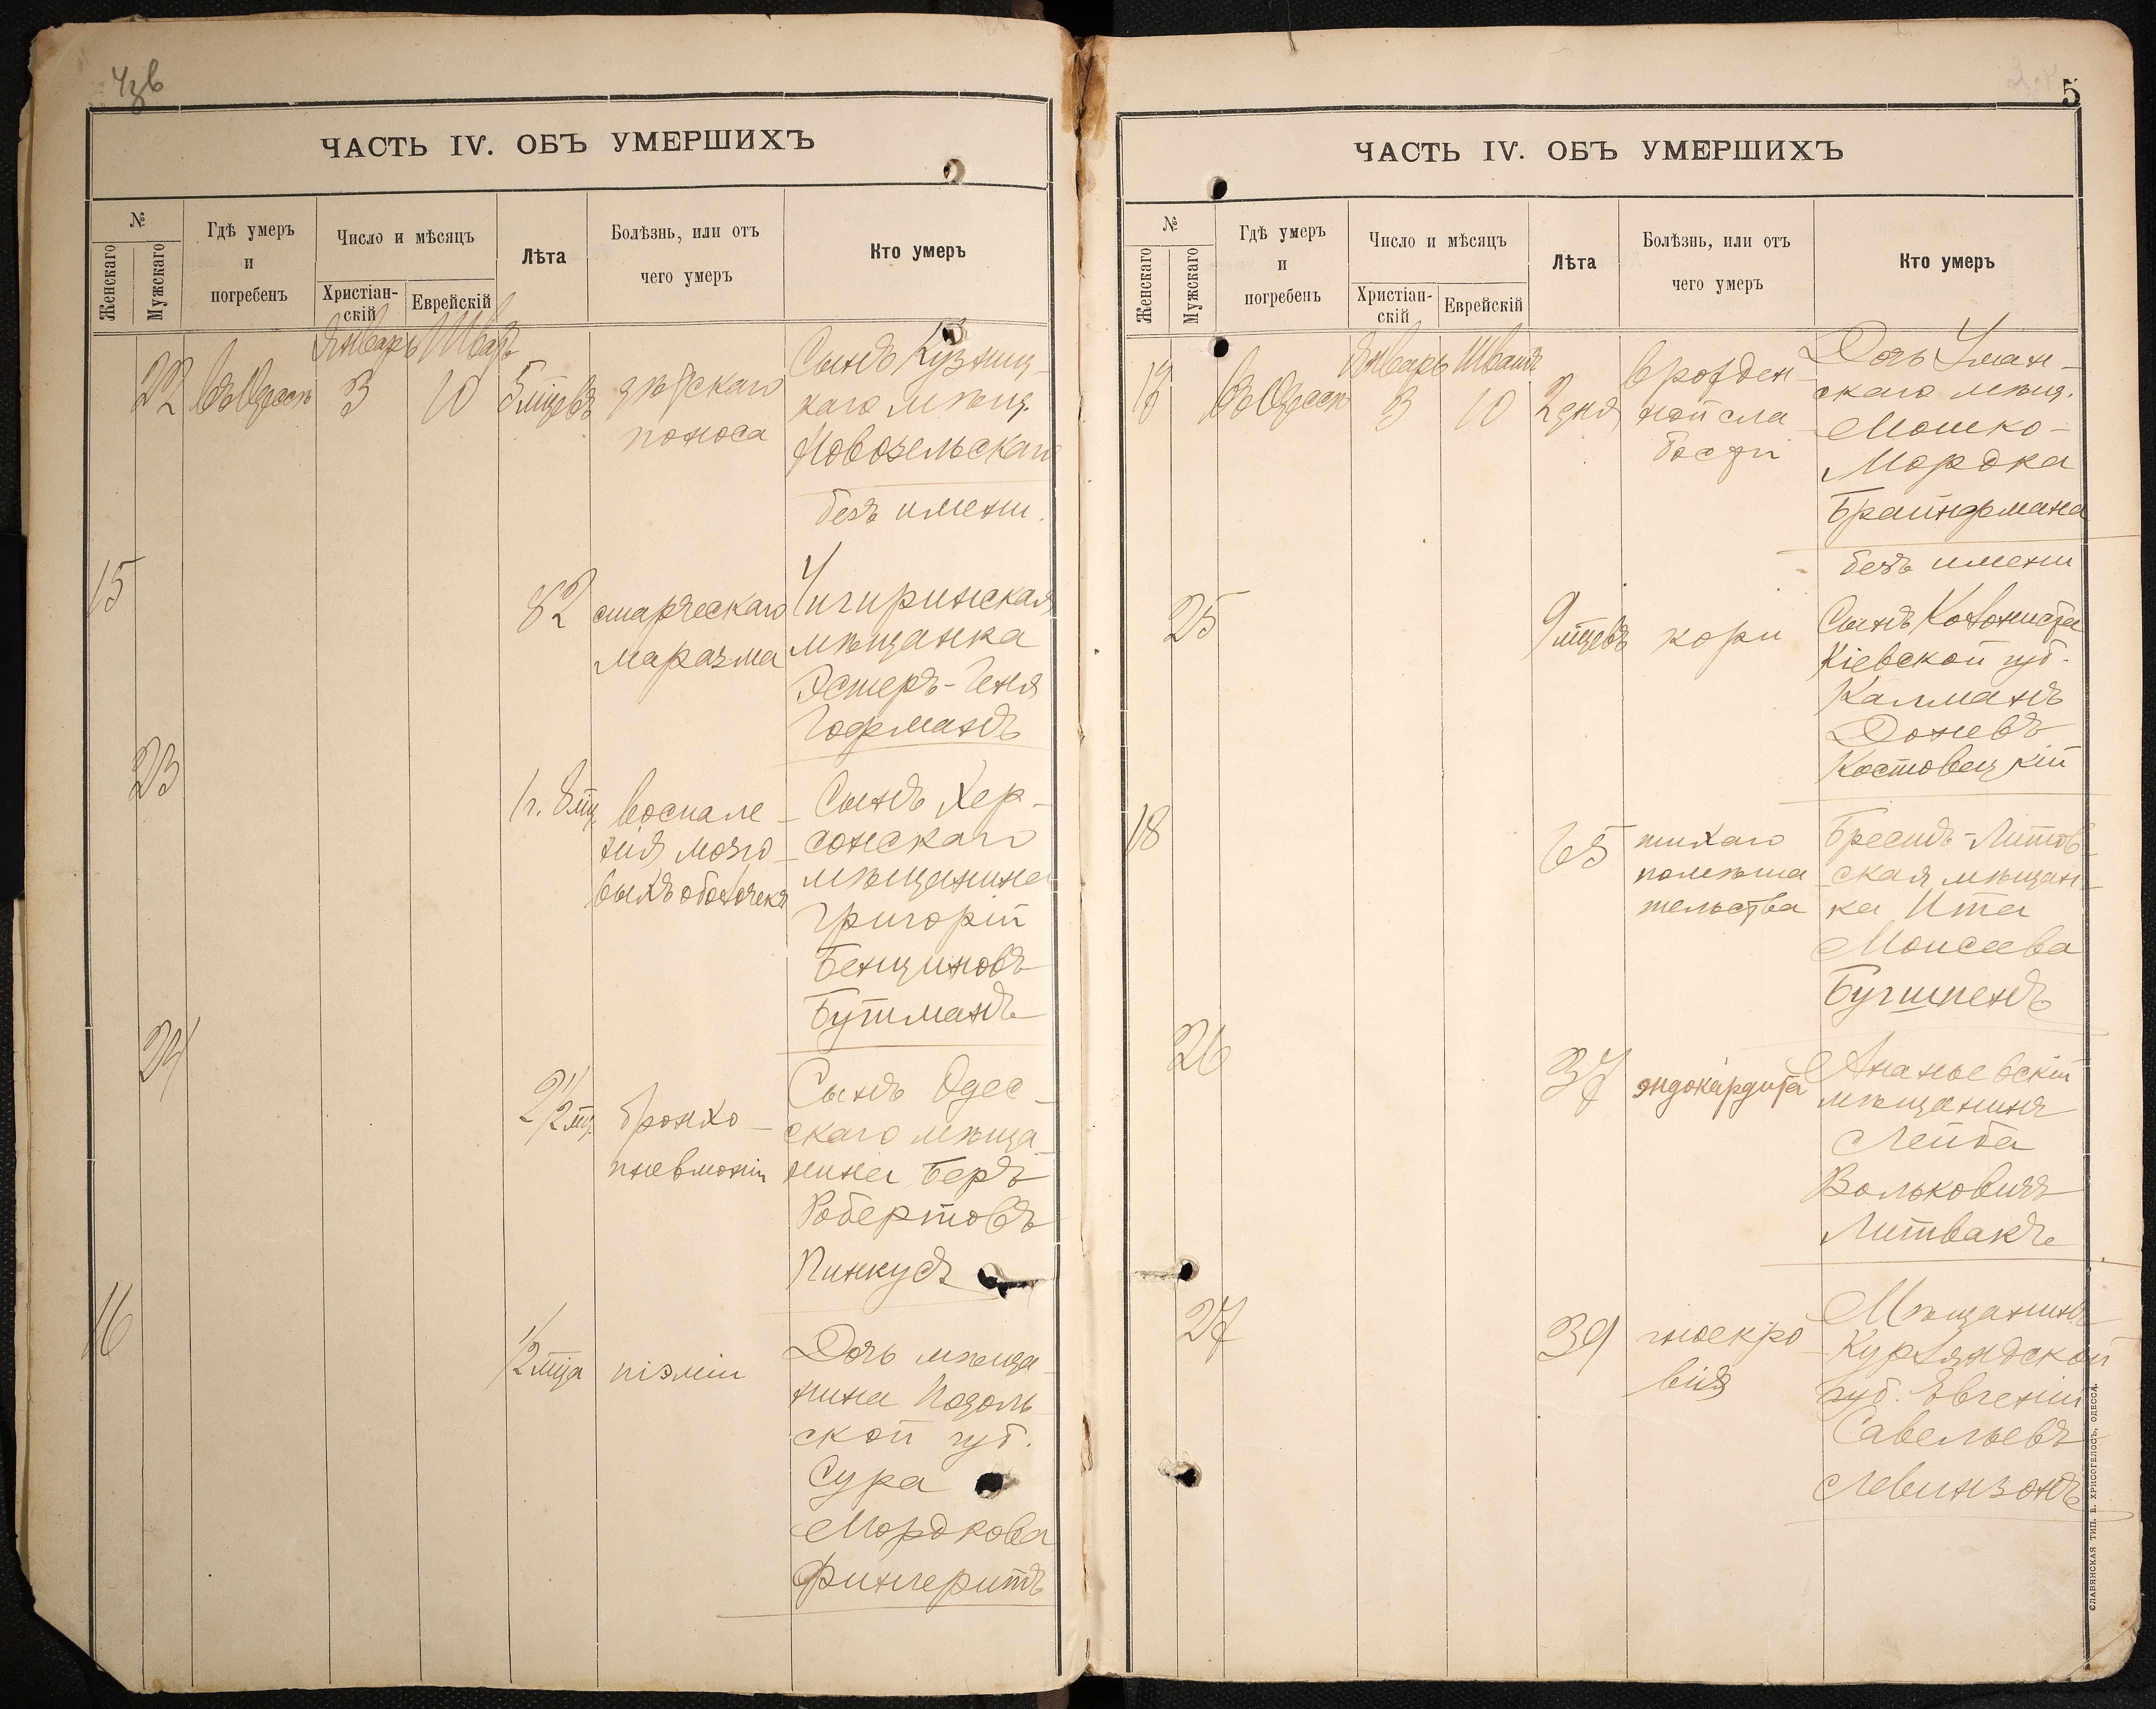 ЧАСТЬ IV. ОБЪ УМЕРШИХЪ
№
Женскаго
Мужскаго
Гдѣ умеръ
и
погребенъ
Число и мѣсяцъ
Христіан-
скій
Еврейскій
Лѣта
Болѣзнь, или отъ
чего умеръ
Кто умеръ
Январь
22
въ Одессѣ
3
10
5 мцевъ
дѣтскаго
поноса
Сынъ Кузниц-
каго мѣщ.
Новосельскаго
безъ имени.
15
82
старческаго
маразма
Чигиринская
мѣщанка
Эстеръ-Геня
Гофманъ
23
1 г. 8 мц.
воспале-
нія мозго-
выхъ оболочекъ
Сынъ Хер-
сонскаго
мѣщанина
Григорій
Бенціновъ
Бутманъ
24
2 1/2 мц.
бронхо-
пневмоніи
Сынъ Одес-
скаго мѣща
нина Беръ
Робертовъ
Пинкусъ
16
1/2 мца
піэміи
Дочь мѣща
нина Подоль
ской губ.
Сура
Мордкова
Фингеритъ
5
ЧАСТЬ IV. ОБЪ УМЕРШИХЪ
№
Женскаго
Мужскаго
Гдѣ умеръ
и
погребенъ
Число и мѣсяцъ
Христіан-
скій
Еврейскій
Лѣта
Болѣзнь, или отъ
чего умеръ
Кто умеръ
Январь Шватъ
17
въ Одессѣ
3
10
2 дня
врожден-
ной сла
бости
Дочь Уман-
скаго мѣщ.
Мошко-
Мордка
Брайтмана
безъ имени
25
9 мцевъ
кори
Сынъ Колониста
Кіевской губ.
Калманъ
Доневъ
Костовецкій
18
65
тихаго
помѣша
тельства
Брестъ-Литов
ская мѣщан-
ка Ита
Моисеева
Бугшпенъ
26
37
эндокардита
Ананьевскій
мѣщанинъ
Лейба
Вольковичъ
Литвакъ
27
39
гноекро
вія
Мѣщанинъ
Курляндской
губ. Евгеній
Савельевъ
Левинзонъ
СЛАВЯНСКАЯ ТИП. Е. ХРИСОГЕЛОСЪ, ОДЕССА.